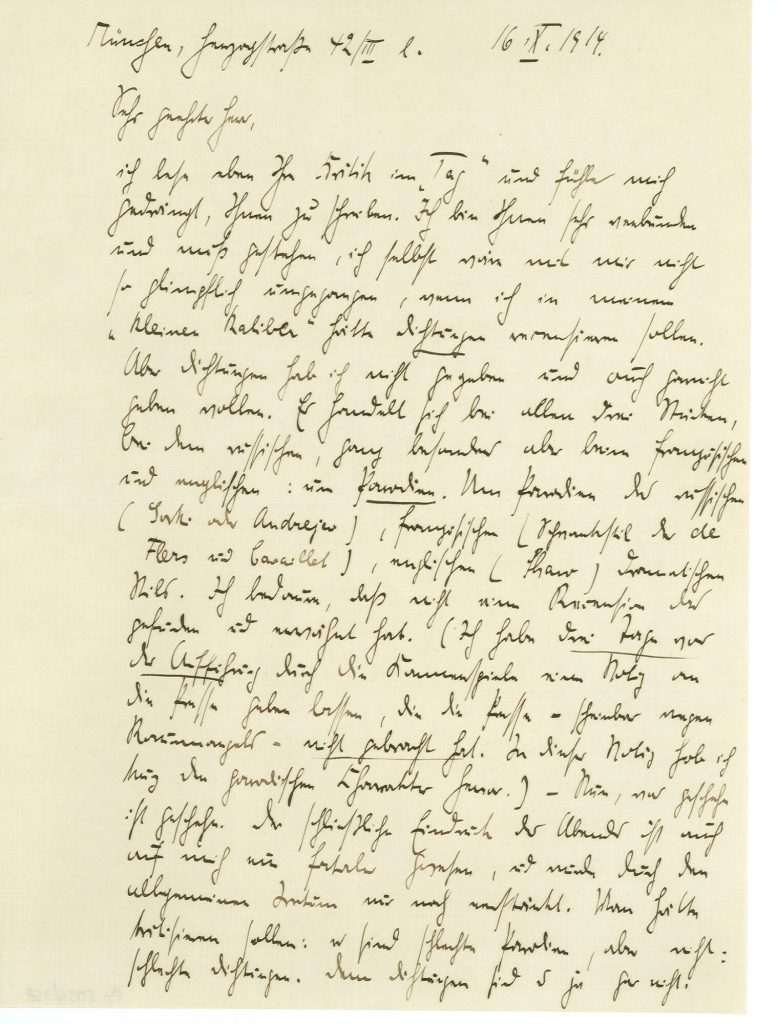 München, Herzogstraße 42/III l. 16.X.1914.
Sehr geehrter Herr,
ich lese eben Ihre Kritik im „Tag“ und fühle mich
gedrängt, Ihnen zu schreiben. Ich bin Ihnen sehr verbunden
und muß gestehen, ich selbst wäre mit mir nicht
so glimpflich umgegangen, wenn ich in meinem
„kleinen Kaliber“ hätte Dichtungen recensieren sollen.
Aber Dichtungen hab ich nicht gegeben und auch garnicht
geben wollen. Es handelt sich bei allen drei Stücken,
bei dem russischen, ganz besonders aber beim französischen
und englischen: um Parodien. Um Parodien des russischen
(Gorki oder Andrejew), französischen (Schwankstil der de
Flers und Cavaillet), englischen (Shaw) dramatischen
Stils. Ich bedaure, daß nicht eine Recension das
gefunden und erwähnt hat. (Ich habe drei Tage vor
der Aufführung durch die Kammerspiele eine Notiz an
die Presse geben lassen, die die Presse – scheinbar wegen
Raummangels – nicht gebracht hat. In dieser Notiz hob ich
den parodischen Charakter hervor.) – Nun, was geschehn
ist geschehn. Der schließliche Eindruck des Abends ist auch
auf mich ein fataler gewesen, und wurde durch den
allgemeinen Irrtum nur noch verstärkt. Man hätte
kritisieren sollen: es sind schlechte Parodien, aber nicht:
schlechte Dichtungen. Denn Dichtungen sind es ja gar nicht!